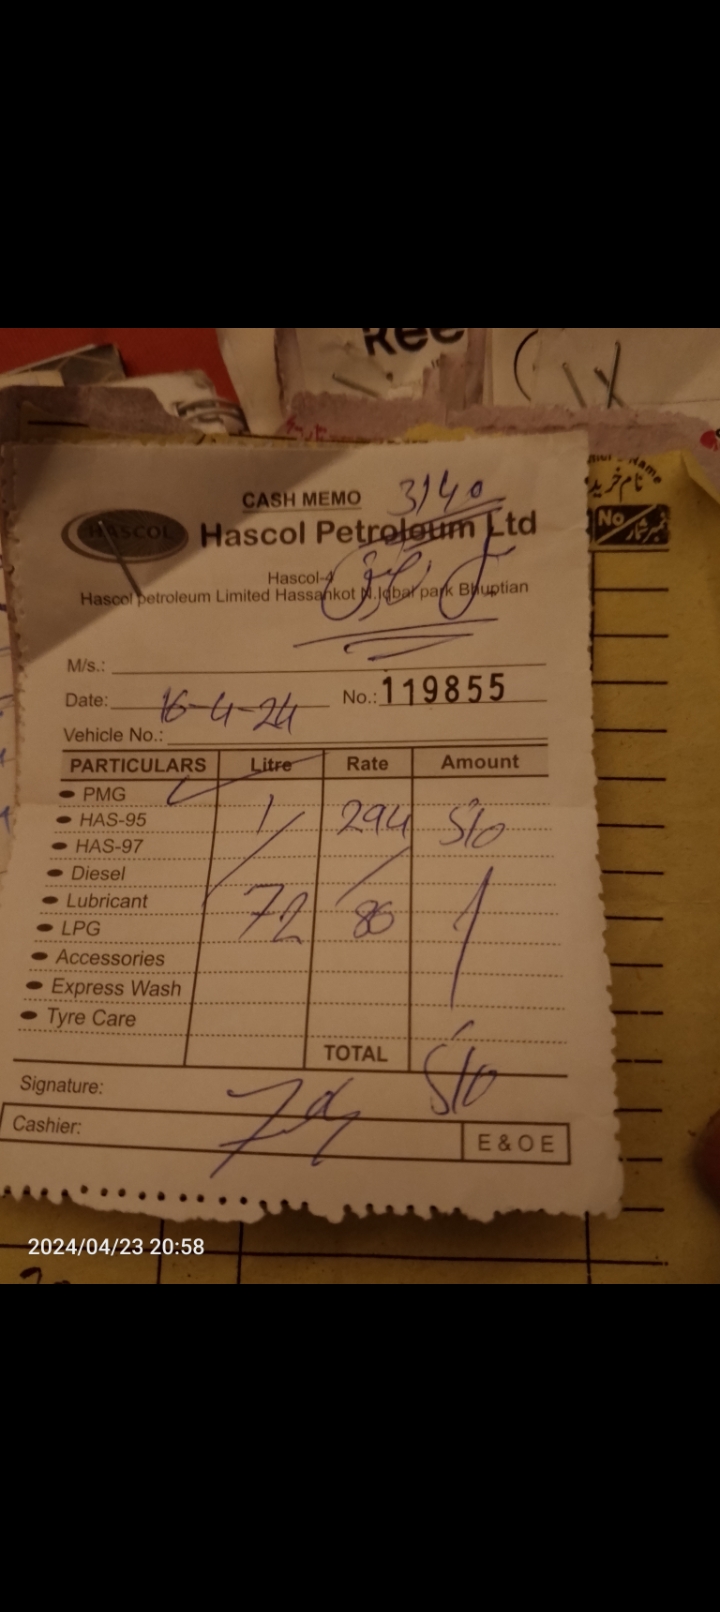 Ree
Name
نام خریدار
No
نمبر شمار
CASH MEMO 3140
HASCOL
Hascol Petroloum Ltd
Hascol-4
Hascol petroleum Limited Hassankot N.Iqbal park Bhuptian
M/s.:
Date: 16-4-24 No.: 119855
Vehicle No.:
PARTICULARS Litre Rate Amount
PMG
HAS-95 1 294 510
HAS-97
Diesel
Lubricant 72 86
LPG
Accessories
Express Wash
Tyre Care
TOTAL 510
Signature:
Cashier: E & O E
2024/04/23 20:58